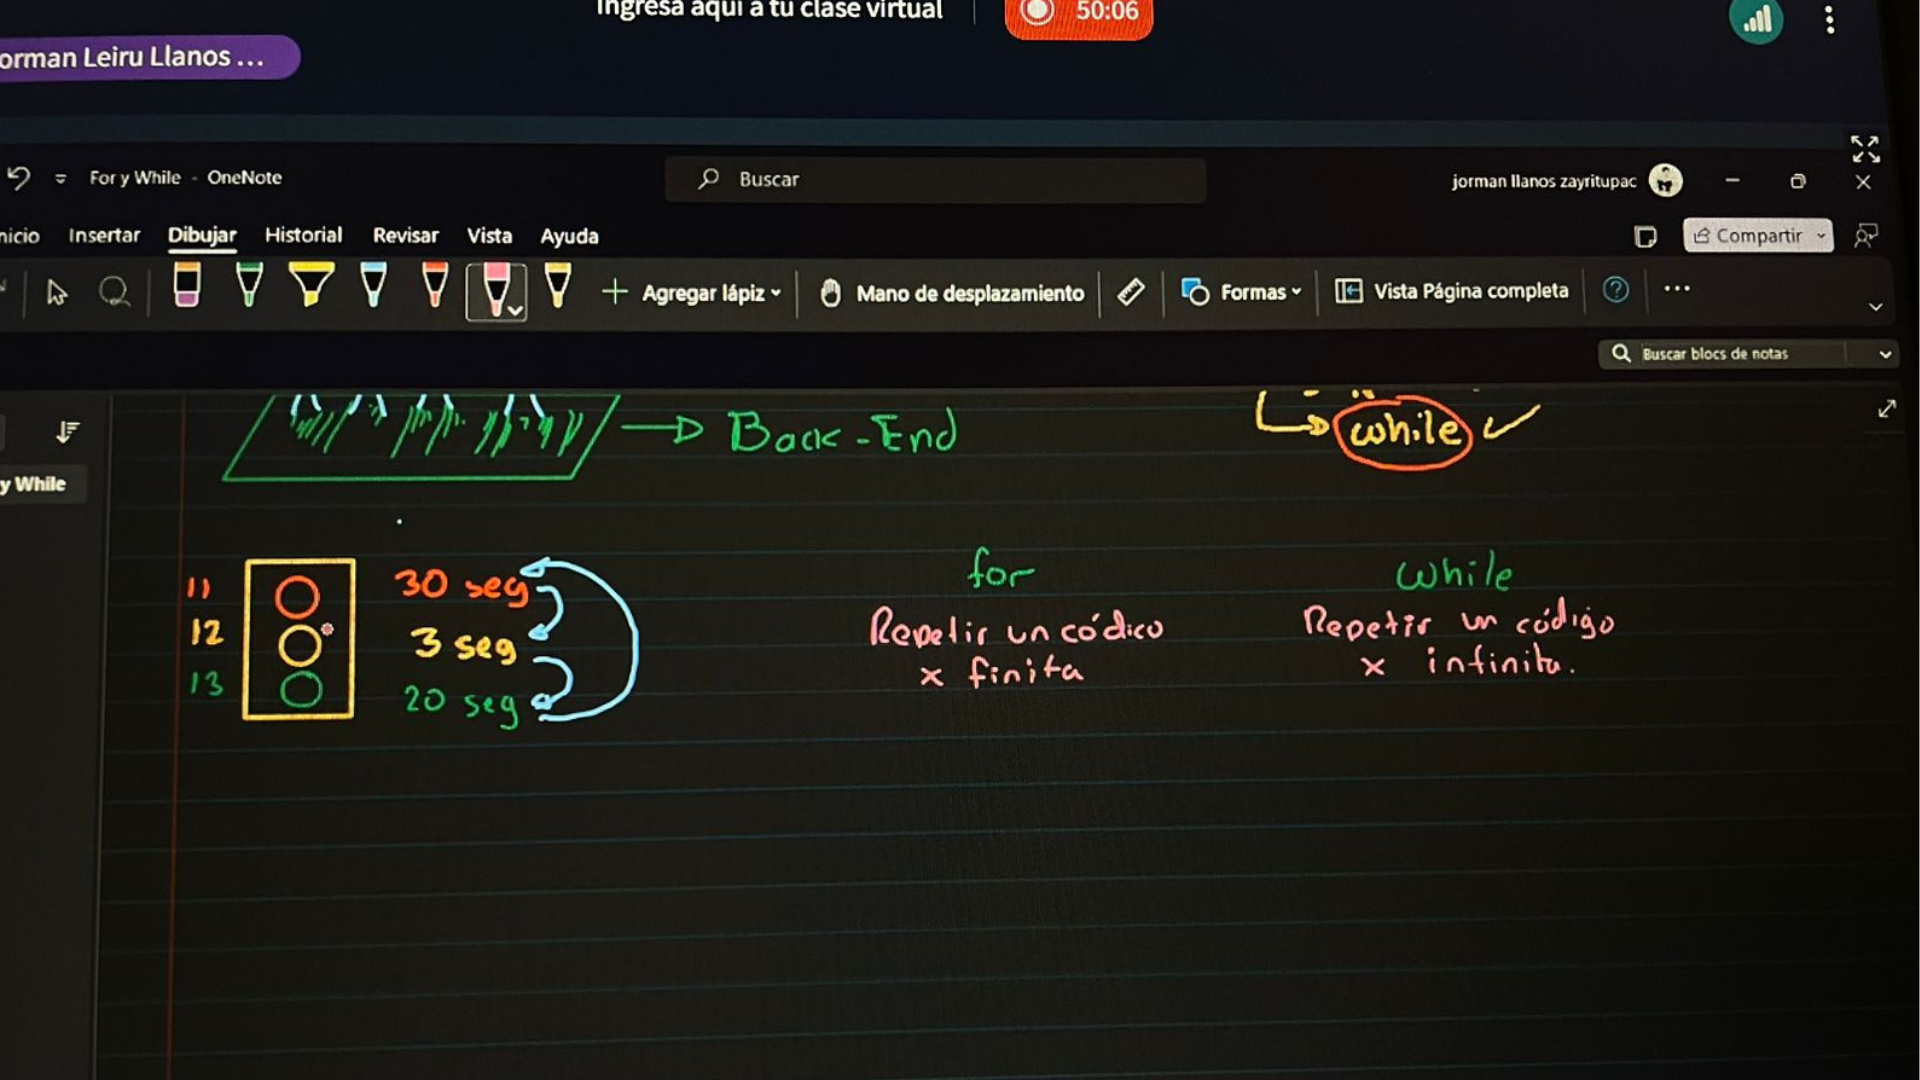 Ingresa aquí a tu clase virtual
50:06
orman Leiru Llanos ...
For y While - OneNote
Buscar
jorman llanos zayritupac
nicio Insertar Dibujar Historial Revisar Vista Ayuda
Compartir
Agregar lápiz
Mano de desplazamiento
Formas
Vista Página completa
Buscar blocs de notas
y While
Back-End
while
11 30 seg
12 3 seg
13 20 seg
for
Repetir un códico
x finita
while
Repetir un código
x infinita.